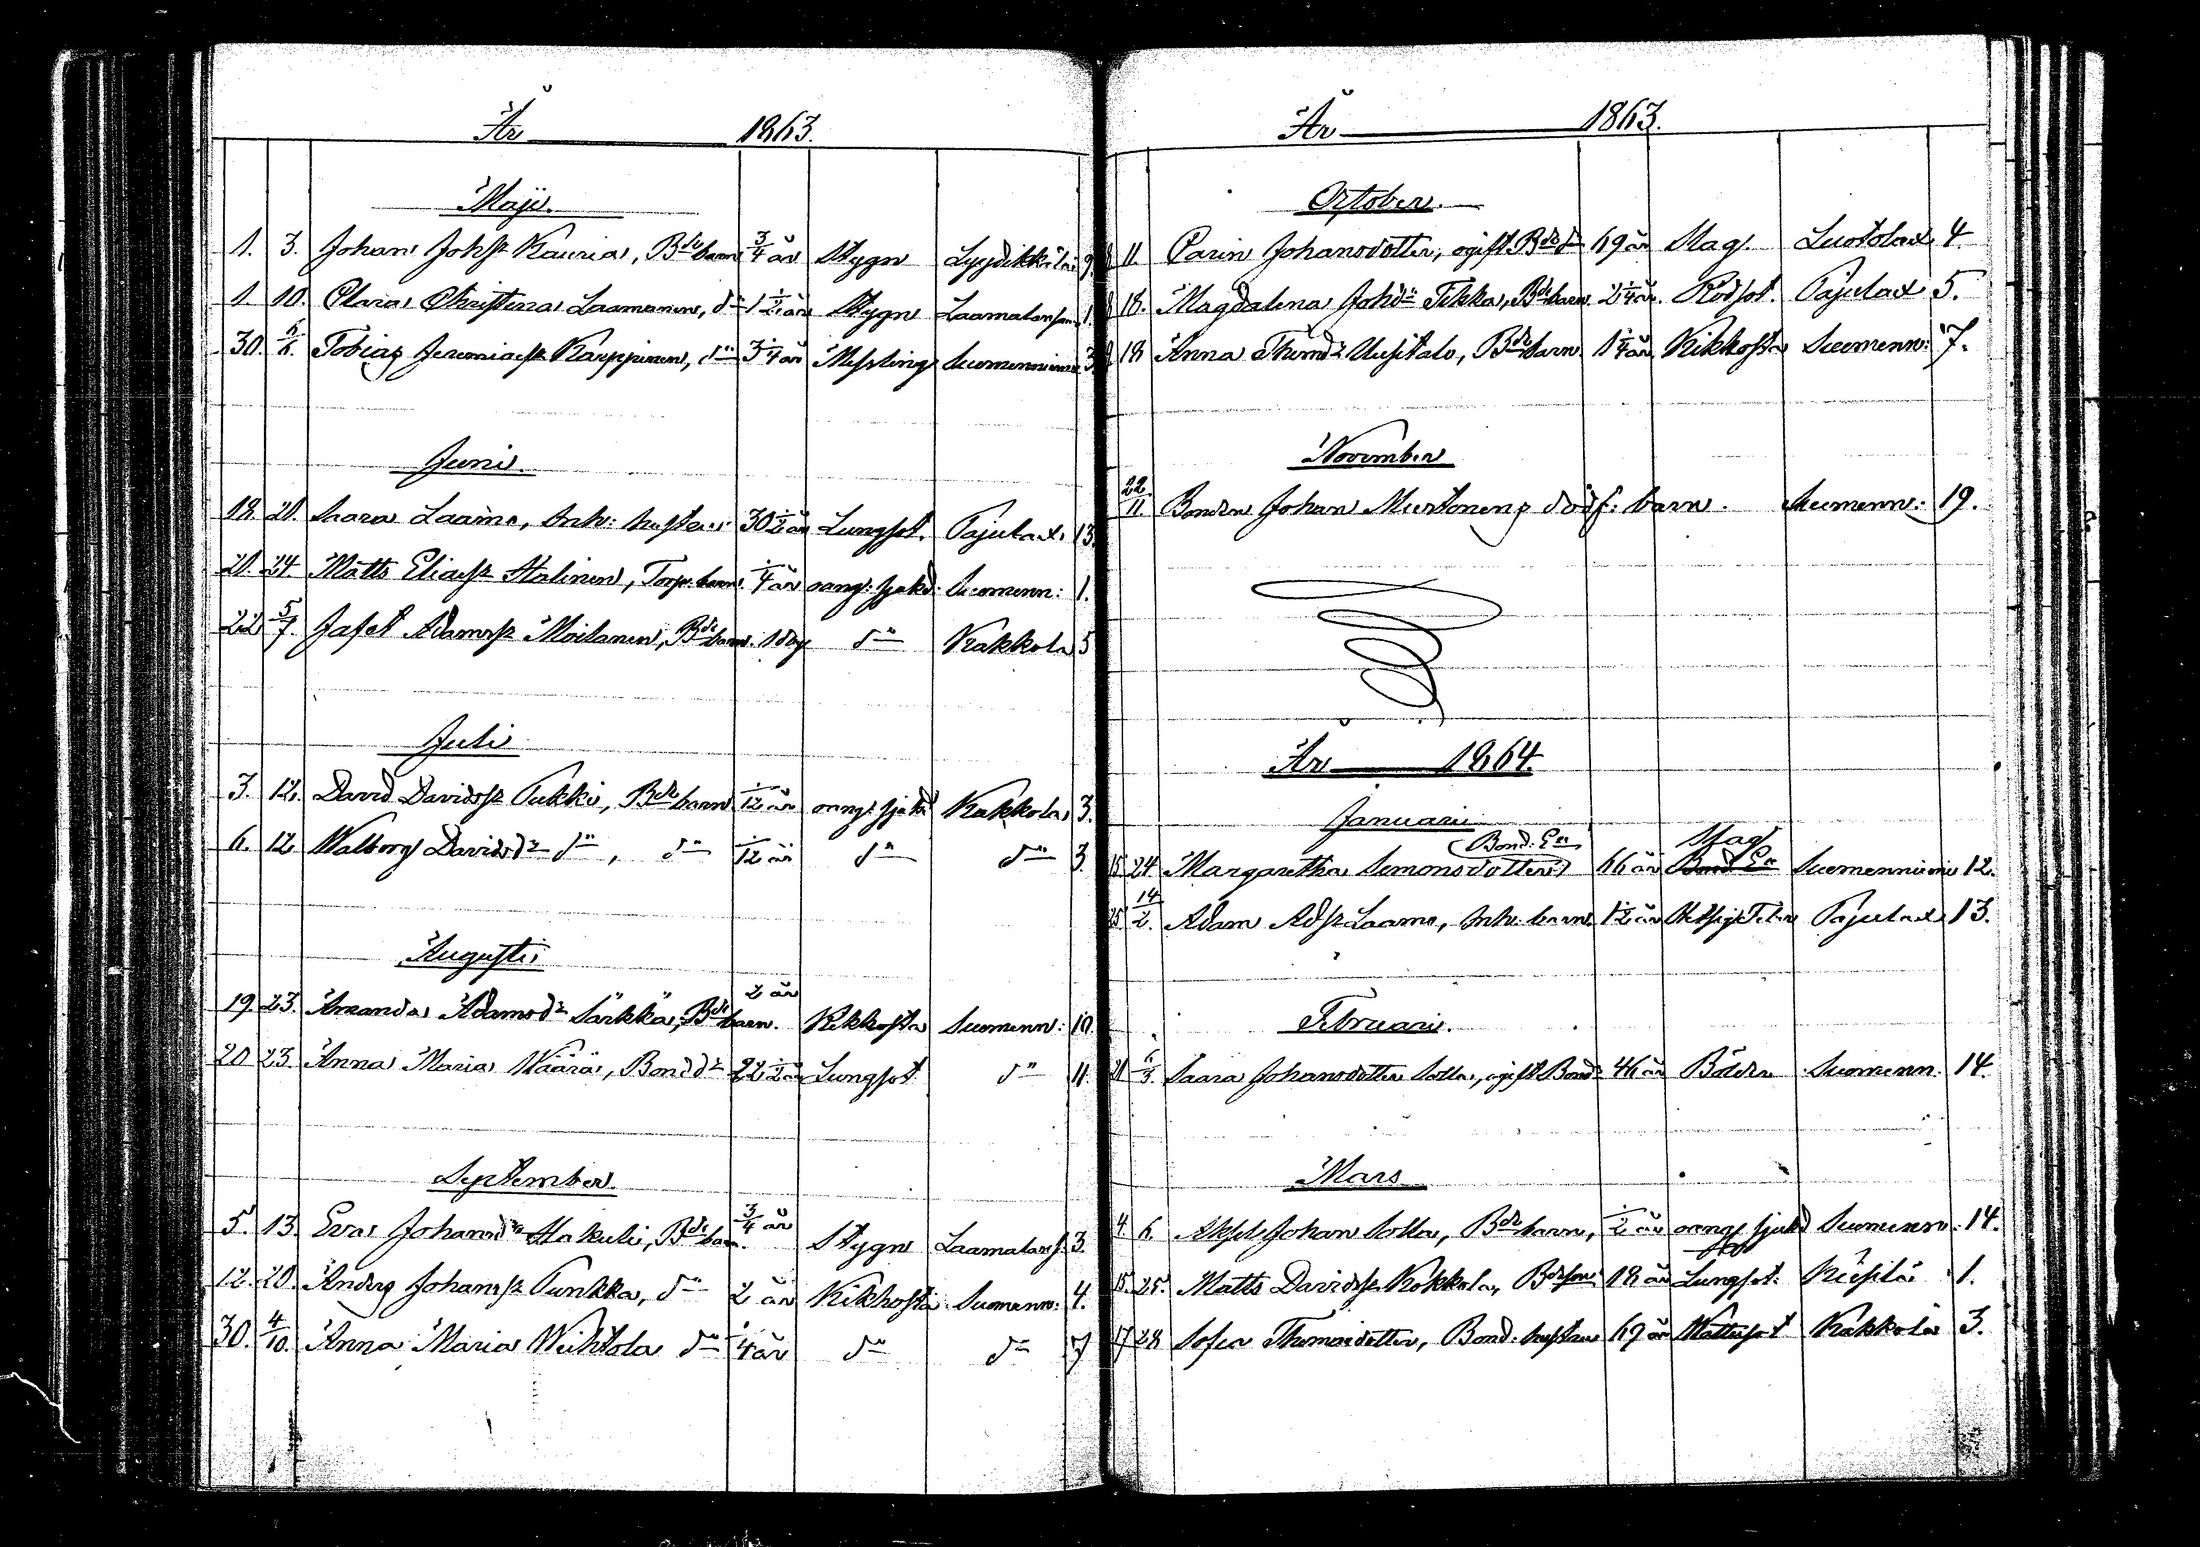 År 1863.
Maji.
1. 3. Johan Johss Kauria, Bde barn 3/4 år Stygn Lyydikkälä 9.
1 10. Clara Christina Laamanen, do 1 1/2 år Stygn Laamalans. 1.
30. 5/6. Tobias Jeremiaess Karppinen, do 3 1/4 år Messling Suomenniemi 3.
Juni.
18. 21. Saara Laamo, Inh: hustru 30 1/2 år Lungsot. Pajulax. 13.
21. 24. Matts Eliaess Stalinen, Torp. barn. 1/4 år oang: sjukd: Suomenn: 1.
22. 5/7. Jafet Adamss Moilanen, Bde barn. 1 dag do Kakkola 5
Juli
3. 12. David Davidss Pukki, Bde barn 1/12 år oang: sjukd Kakkola 3.
6. 12 Walborg Davidsdr do, do 1/12 år do do 3.
Augusti
19. 23. Amanda Adamsdr Särkkä, Bde barn. 2 år Kikhosta Suomenn: 10.
20 23. Anna Maria Määrä, Bonddr 22 1/2 år Lungsot do 11.
September.
5. 13. Eva Johansdr Hakuli, Bde barn. 3/4 år Stygn Laamalans. 3.
12. 20. Anders Johanss Punkka, do 2 år Kikhosta Suomenn: 4.
30. 4/10. Anna Maria Weihtola do 1/4 år do do 7
År 1863.
October.
11. Carin Johansdotter, ogift Bde 69 år Slag. Luotolax 4.
18. Magdalena Johdr Tikka, Bde barn. 2 1/4 år. Rödsot. Pajulax 5.
18 Anna Thomdr Uusitalo, Bde barn 1 1/4 år Kikhosta Suomenn: 7.
November
22/11. Bonden Johan Murtonens dödf: barn. Suomenn: 19.
År 1864.
Januari
15 24. Margaretha Simonsdotter (Bond. Ea) 66 år Slag Bond Ea Suomenniemi 12.
14/2. Adam Adss Laamo, Inh: barn. 1 1/2 år Pajulax 13.
Februari.
21 6/3. Saara Johansdotter Solla, ogift Bond 46 år Bölder Suomenn. 14.
Mars
4. 6. Axel Johan Solla, Bde barn, 1/2 år oang: sjukd Suomenn: 14.
15. 25. Matts Davidss Kokkola, Bdeson 18 år Lungsot. Kiesilä 1.
17 28 Sofia Thomasdotter, Bond. hustru 69 år Wattusot Kakkola 3.